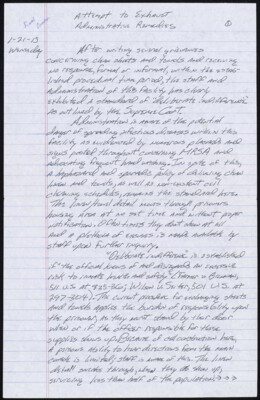 Attempt to Exhaust
Administrative Remedies
1-21-13
After writing several grievances
concerning clean sheets and towels and receiving
no response, formal or informal, within the
time period, the staff and
Administration at this facility has clearly
established a standard of "deliberate indifference"
as outlined by the Supreme Court.
Administration is aware of the potential
danger of spreading infectious diseases within this
facility as evidenced by numerous placards and
signs posted throughout concerning MRSA and
advocating frequent hand washing. In spite of this,
a haphazard and sporadic policy of delivering clean
linen and towels, as well as
cleaning schedules, remains the standard here.
The linen/towel detail moves through
housing area at no set time and without proper
notification. Often times they don't show at all
and a plethora of excuses is made available by
staff upon further inquiry.
"Deliberate indifference" is established
if "the official knows of and disregards an excessive
risk to inmate health and safety" (Farmer v. Brennan,
511 U.S. at 825-360; Wilson v. Seiter, 501 U.S. at
297-304). The current procedure for exchanging sheets
and towels applies the burden of responsibility upon
the prisoner, as they must stand by their door
when or if the officer responsible for these
supplies shows up. Because of
prisoner's ability to hear directions from the main
is limited; staff is aware of this. The linen
detail moves through, when they do show up,
servicing less than half of the population>>>